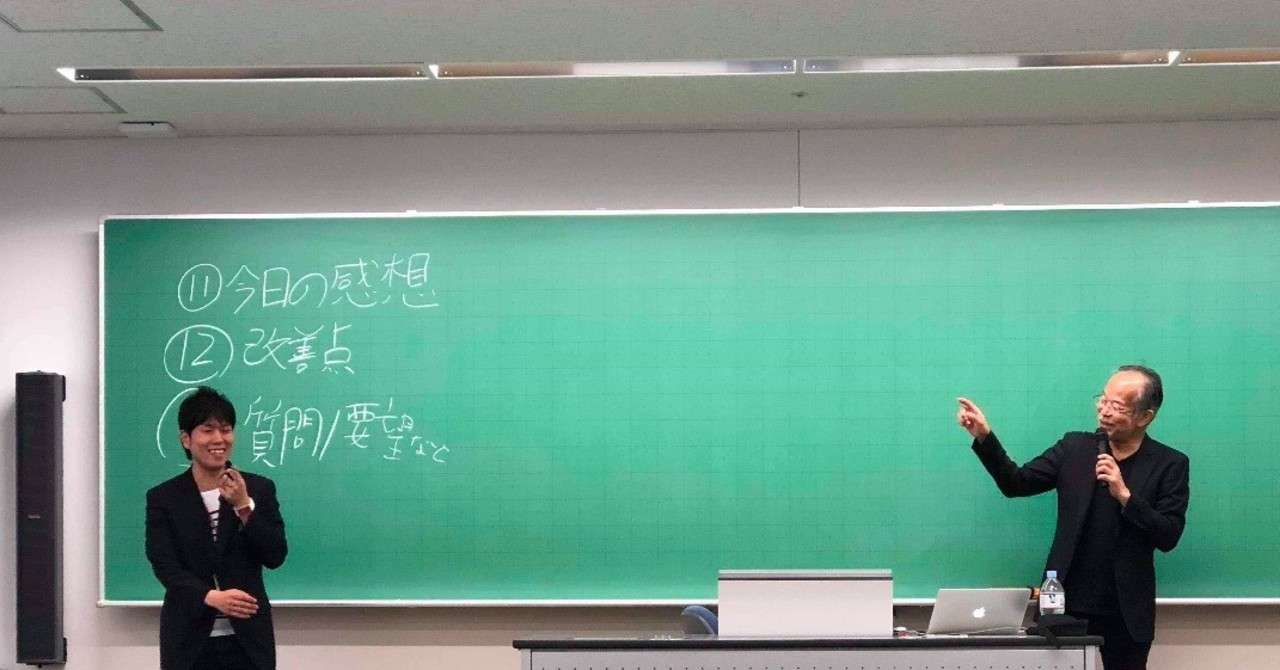 ⑪今日の感想
⑫改善点
質問/要望など